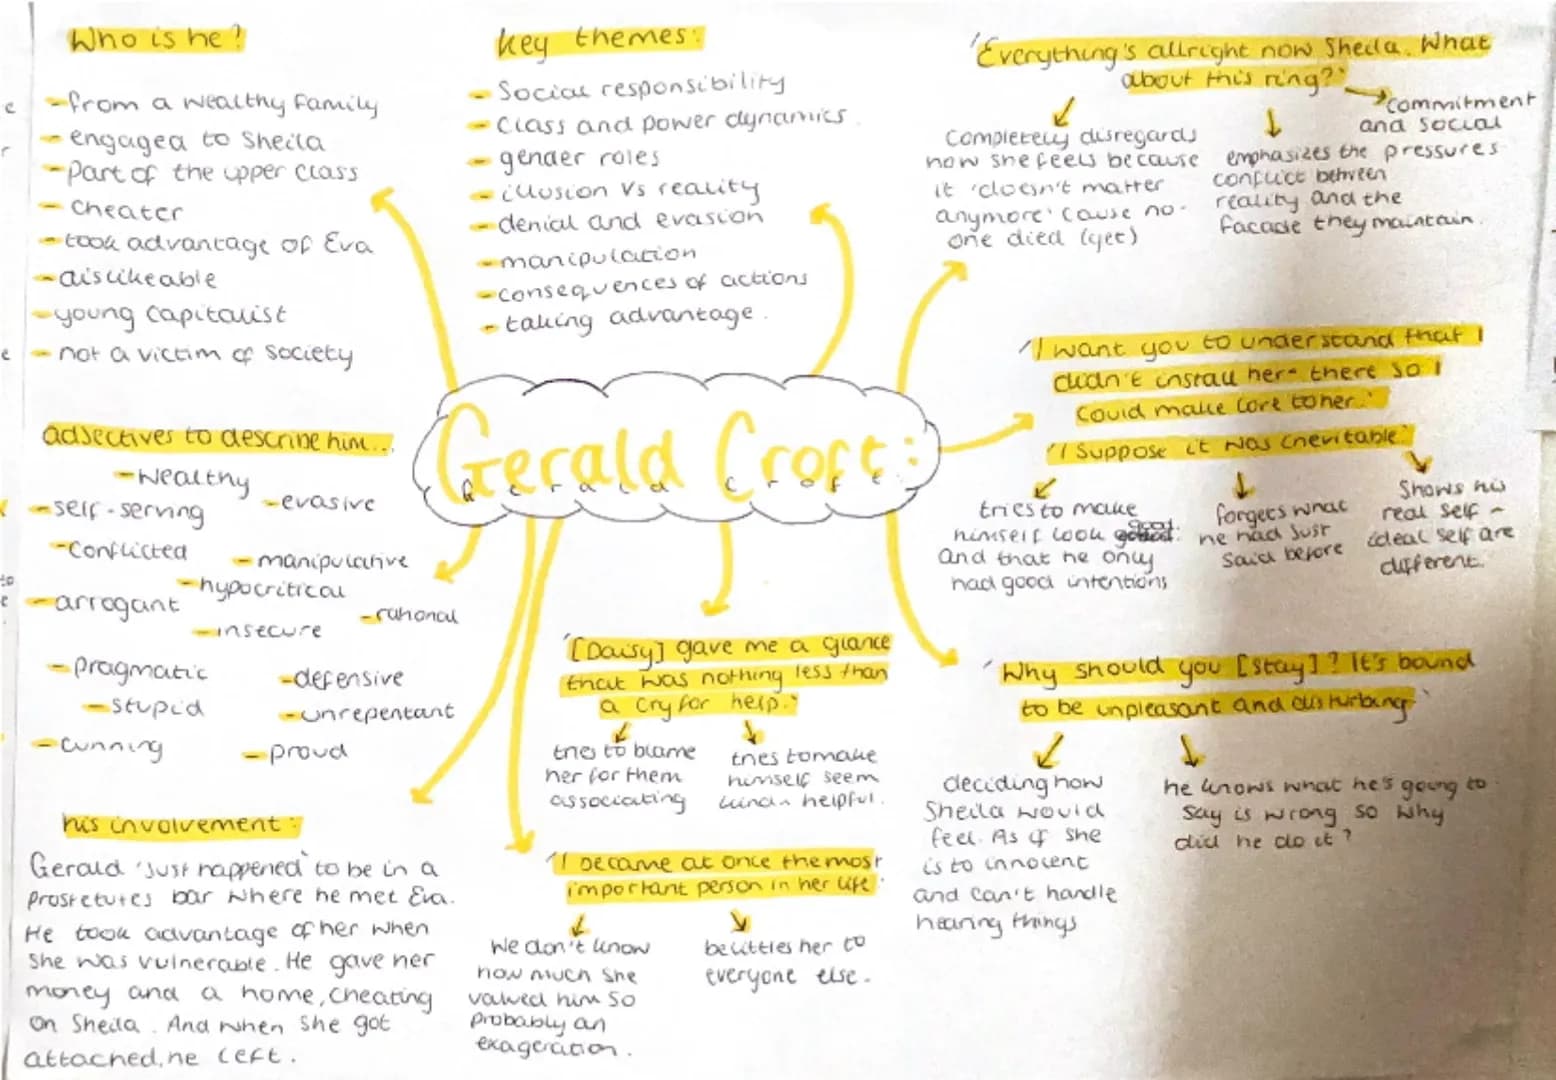 Who is he?
- from a wealthy family
- engaged to Sheila
- Part of the upper class
- Cheater
- took advantage of Eva
- dislikeable
- young capitalist
- not a victim of society
key themes:
- Social responsibility
- Class and power dynamics
- gender roles
- illusion vs reality
- denial and evasion
- manipulation
- consequences of actions
- taking advantage.
'Everything's allright now Sheila. What
about this ring?'
Completely disregards
how she feels because
it 'doesn't matter
anymore' cause no-
one died (yet)
emphasizes the
conflict between
reality and the
facade they maintain.
commitment
and social
pressures
'I want you to understand that I
didn't install her there so I
could make love to her.'
'I suppose it was inevitable'
tries to make
himself look good
and that he only
had good intentions
forgets what
he had just
said before
Shows his
real self -
ideal self are
different.
Gerald Croft:
Gerald Croft
adjectives to describe him...
- Wealthy
- self-serving
- evasive
- Conflicted
- manipulative
- hypocritical
- arrogant
- rational
- insecure
- pragmatic
- defensive
- stupid
- unrepentant
- cunning
- proud
'[Daisy] gave me a glance
that was nothing less than
a cry for help.'
tries to blame
her for them
associating
tries to make
himself seem
kind helpful.
'Why should you [stay]? It's bound
to be unpleasant and disturbing'
deciding how
Sheila would
feel. As if she
is to innocent
and can't handle
hearing things
he knows what he's going to
say is wrong so why
did he do it?
his involvement:
Gerald 'just happened' to be in a
prostetutes bar where he met Eva.
He took advantage of her when
she was vulnerable. He gave her
money and a home, cheating
on Sheila. And when she got
attached, he left.
'I became at once the most
important person in her life'
We don't know
how much she
valued him so
probably an
exageration.
belittles her to
everyone else.